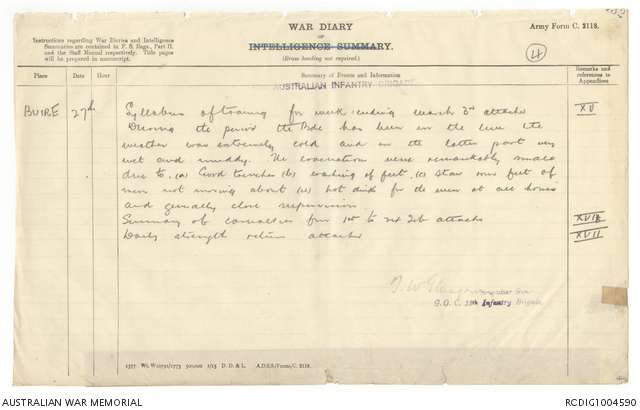 WAR DIARY
Army Form C. 2118.
Instructions regarding War Diaries and Intelligence
Summaries are contained in F. S. Regs., Part II.
and the Staff Manual respectively. Title pages
will be prepared in manuscript.
of
INTELLIGENCE SUMMARY.
(Erase heading not required.)
4
Place
Date
Hour
Summary of Events and Information
Remarks and
references to
Appendices
AUSTRALIAN INFANTRY BRIGADE
BUIRE 27th Syllabus of training for week ending March 3rd attached XV
During the period the Bde has been in the line the
weather was extremely cold and in the latter part very
wet and muddy. The evacuations were remarkably small
due to. (a) Good trenches (b) washing of feet. (c) feet of
men not moving about (d) hot drink for the men at all hours
and generally close supervision
Summary of casualties from 1st to Feb attached XVIA
Daily strength return attached XVII
G.O.C. 13th Infantry Brigade
D. D. & L. A.D.S.S./Forms/C. 2118.
AUSTRALIAN WAR MEMORIAL
RCDIG1004590